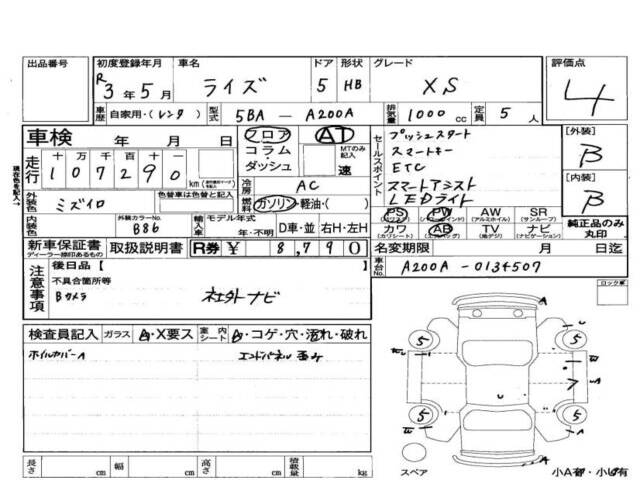 出品番号 初度登録年月 車名 ドア 形状 グレード 評価点
R3年5月 ライズ 5 HB XS 4
車歴 自家用・(レンタ) 型式 5BA - A200A 排気量 1000cc 定員 5人
車検 年 月 日 フロア AT セールスポイント プッシュスタート [外装]
コラム・ MTのみ記入 スマートキー B
走行 十万千百十一 ダッシュ 速 ETC
107290 km 冷房 AC スマートアシスト [内装]
現在色を記入→ 外装色 ミズイロ 色替車は色替と記入 燃料 ガソリン・軽油・( ) LEDライト B
内装色 外装カラーNo. B86 輸入車 モデル年式 年・不明 D車・並 右H・左H PS PW AW SR
(パワステ) (パワーウインド) (アルミホイル) (サンルーフ)
カワ AB TV ナビ 純正品のみ丸印
(カワシート) (エアバッグ) (地デジ) (ナビゲーション)
新車保証書 取扱説明書 R券 ¥ 8,790 名変期限 月 日迄
ディーラー捺印あるもの
注意事項 後日品【 】 車台No. A200A-0134507
不具合箇所等 ロック車
Bカメラ 社外ナビ
検査員記入 ガラス A・X要ス 室内シート A・コゲ・穴・汚れ・破れ
ホイルカバーA エンドパネル歪み
A
U
5 5
A
U
5 5
A
長さ cm 幅 cm 高さ cm 積載量 kg
スペア 小A有・小U有